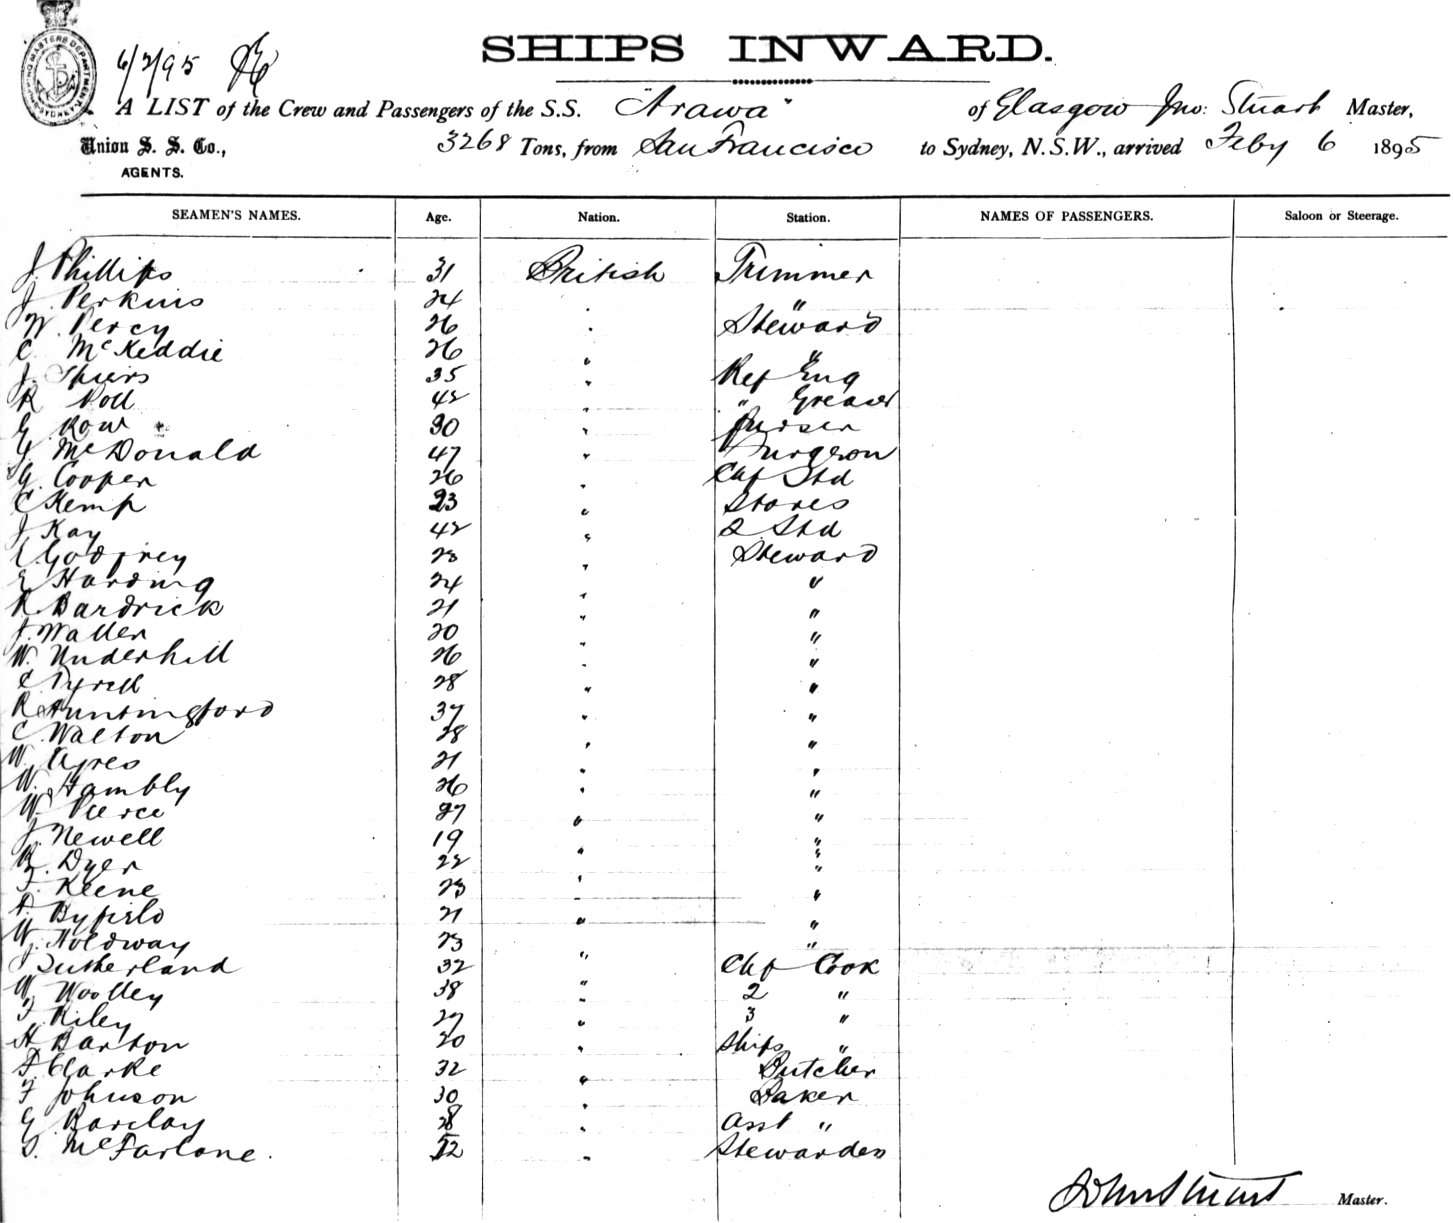 SHIPS INWARD.
6/2/95
A LIST of the Crew and Passengers of the S.S. "Arawa" of Glasgow Jno: Stuart Master,
Union S. S. Co., 3268 Tons, from San Francisco to Sydney, N.S.W., arrived Feby 6 1895
AGENTS.
SEAMEN'S NAMES. Age. Nation. Station. NAMES OF PASSENGERS. Saloon or Steerage.
J. Phillips 31 British Trimmer
J. Perkins 24 " "
W. Percy 26 " Steward
C McKeddie 26 " "
J. Spiers 35 " Ref Eng
R Poll 42 " " Greaser
G. Row 30 " Purser
J. McDonald 47 " Surgeon
G. Cooper 26 " Chf Std
C Kemp 23 " Stores
J Kay 42 " 2 Std
Godfrey 23 " Steward
E Harding 24 " "
R. Bardrick 21 " "
J. Waller 20 " "
W. Underhill 26 " "
C Tyrell 28 " "
R Huntingford 37 " "
C. Walton 28 " "
W. Ayres 21 " "
W. Hambly 26 " "
W. Pierce 27 " "
J. Newell 19 " "
Dyer 22 " "
F. Keene 23 " "
Byfield 21 " "
W. Holdway 23 " "
J Sutherland 32 " Chf Cook
W Woolley 38 " 2 "
F. Riley 27 " 3 "
H Barton 20 " Ships "
F. Clarke 32 " Butcher
F Johnson 30 " Baker
G Barclay 28 " Asst "
S. McFarlane. 52 " Stewardess
John Stuart Master.